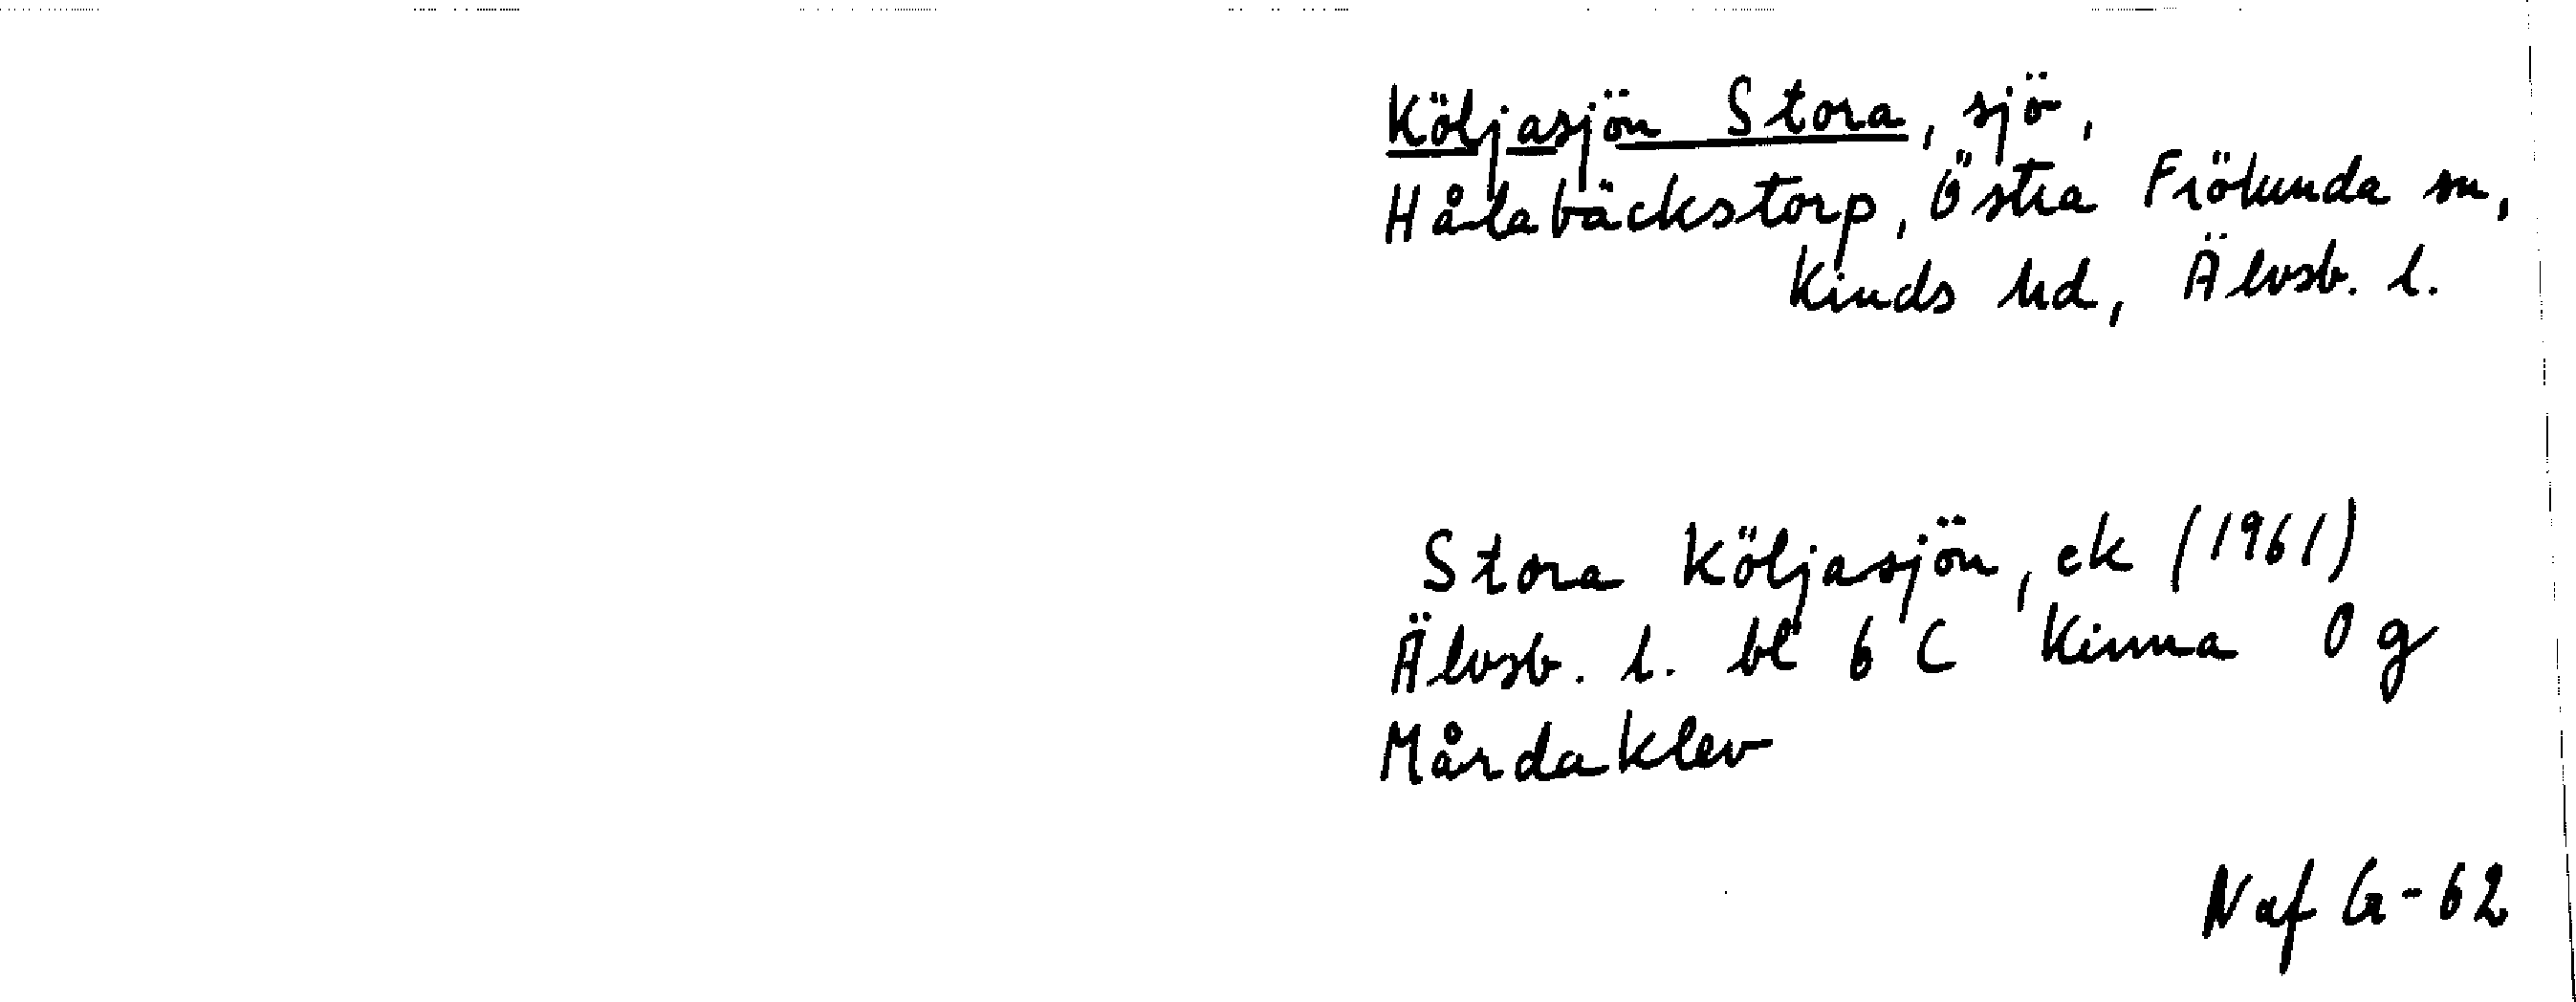 Köljasjön Stora, sjö,
Hålabäckstorp, Östra Frölunda sn,
Kinds hd, Älvsb. l.
Stora Köljasjön, ek (1961)
Älvsb. l. bl 6 C Kinna 0 g
Mårdaklev
N af G-62